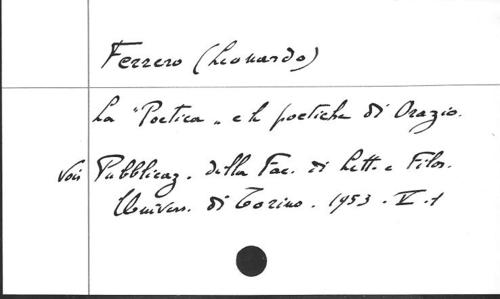 Ferrero (Leonardo)
La "Poetica" e le poetiche di Orazio.
Vedi Pubblicaz. della Fac. di Lett. e Filos.
Univers. di Torino. 1953. V. 1